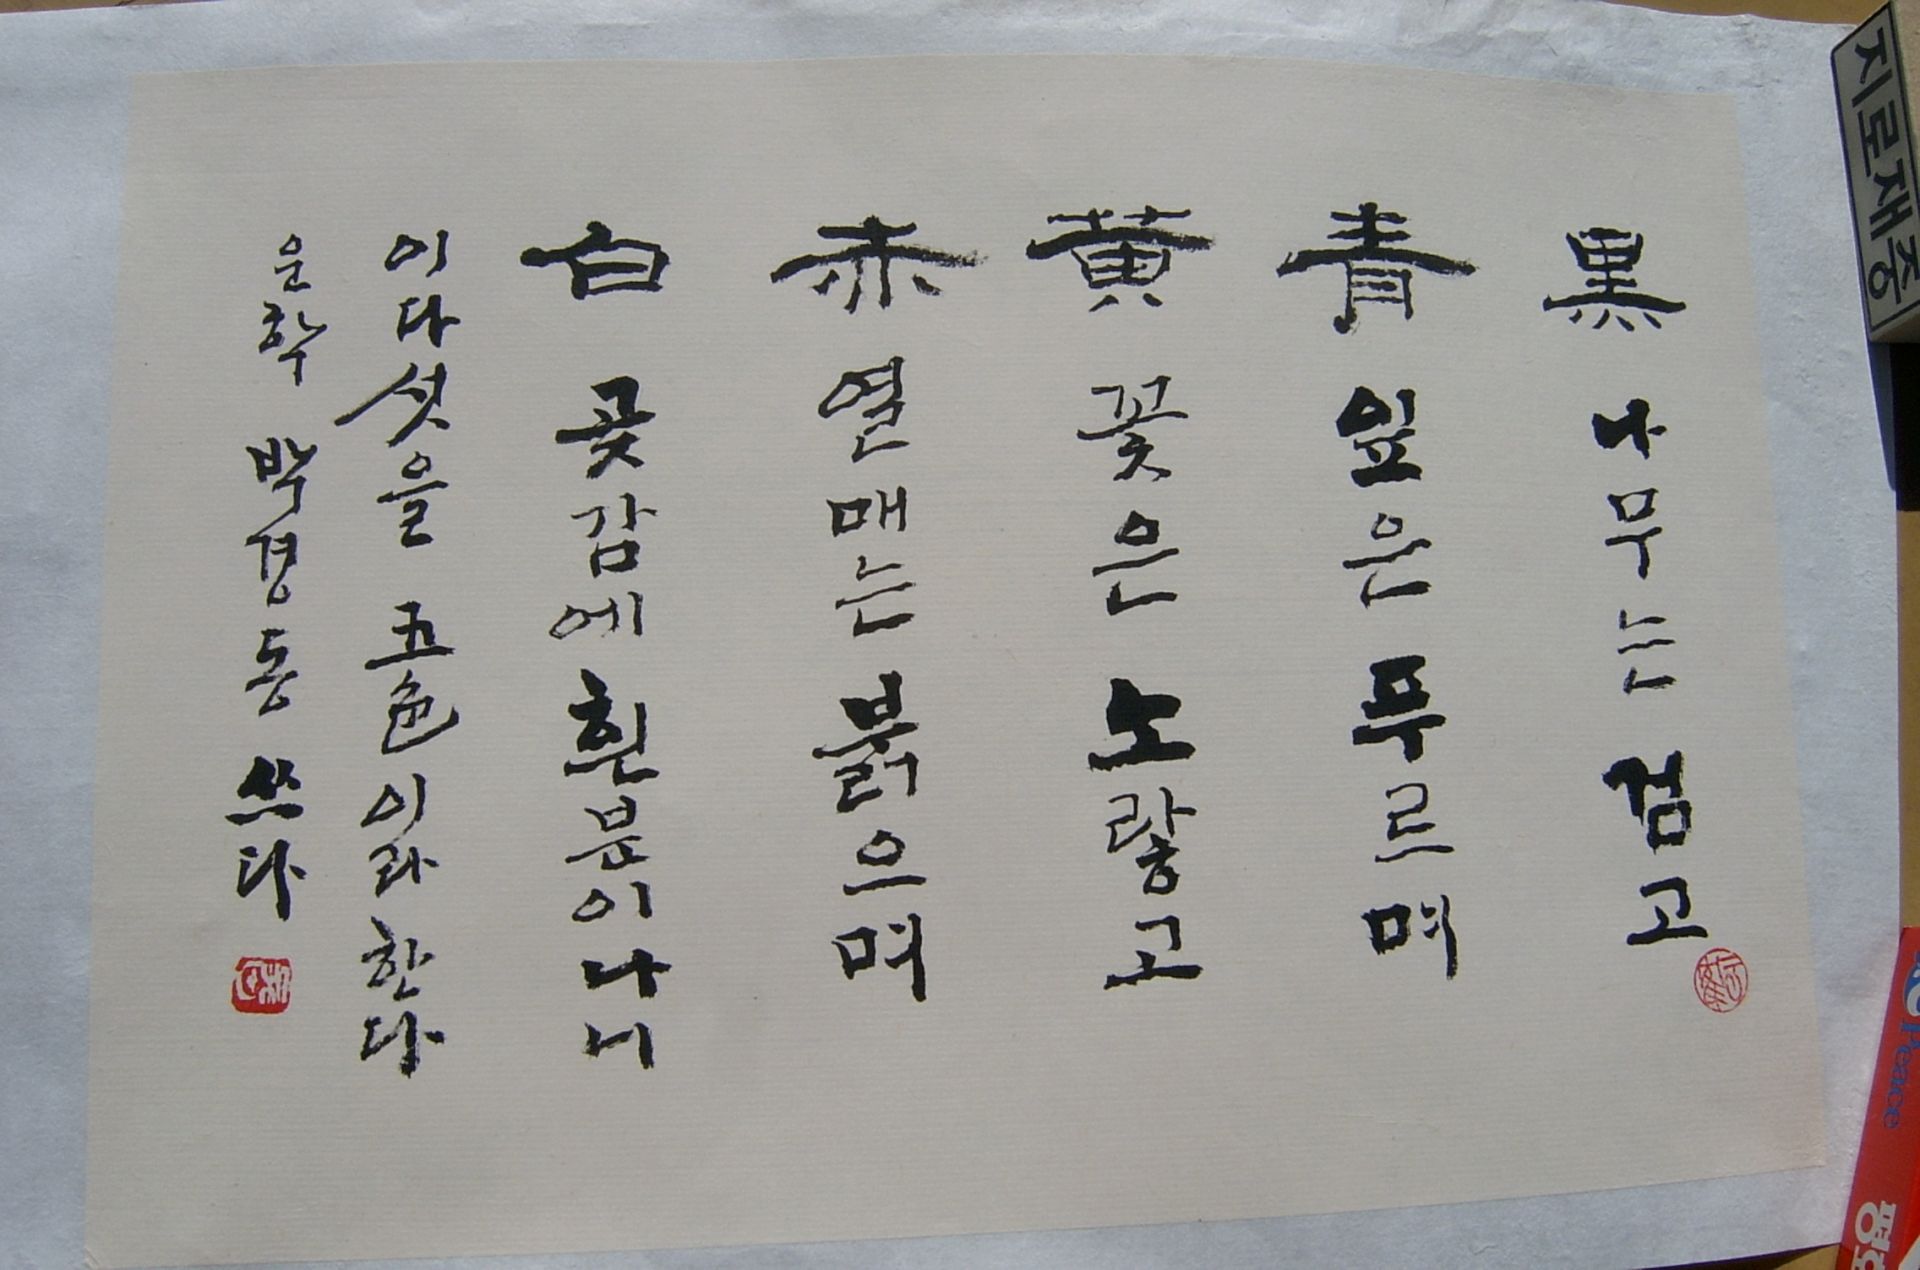 黑 나무는 검고
靑 잎은 푸르며
黃 꽃은 노랗고
赤 열매는 붉으며
白 곶감에 흰분이나니
이다섯을 五色이라한다
운학 박경동 쓰다
지로재중
Peace
평화